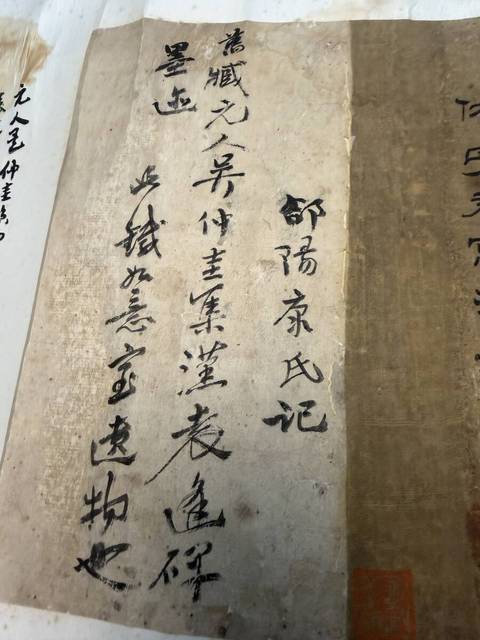 郃陽康氏记
舊藏元人吴仲圭集漢袁逢碑
墨迹
此鐵如意室遺物也
元人吴仲圭